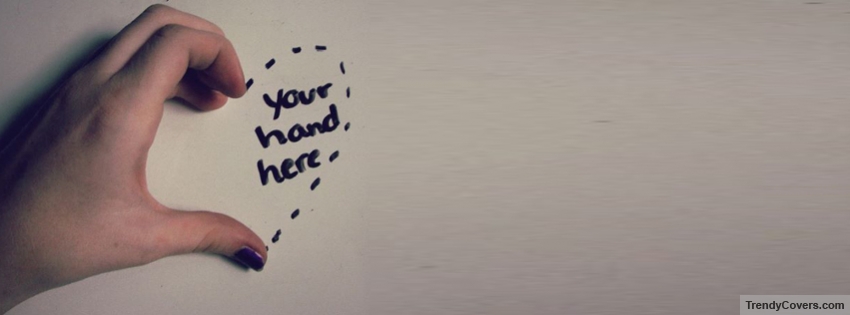 your
hand
here
TrendyCovers.com